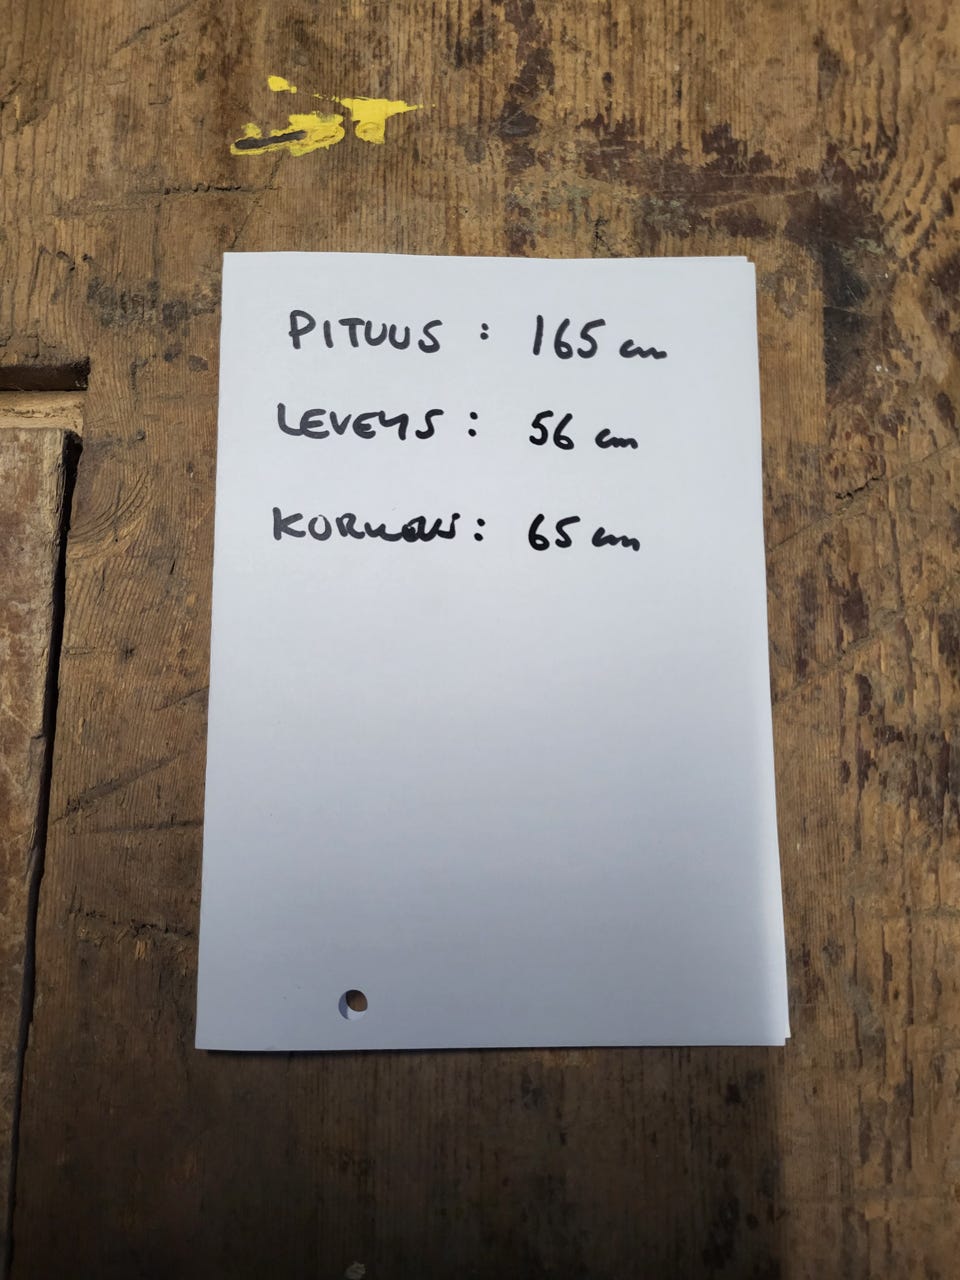 PITUUS : 165 cm
LEVEYS : 56 cm
KORKEUS : 65 cm